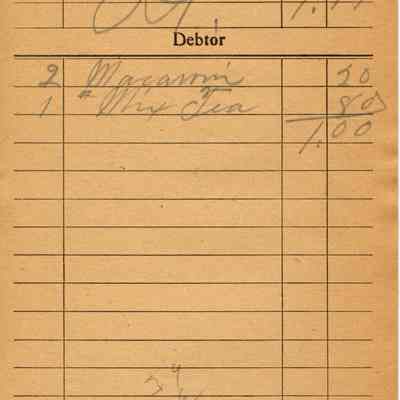 Debtor
2 Macaroni 20
1 # Mix Tea 80
1.00